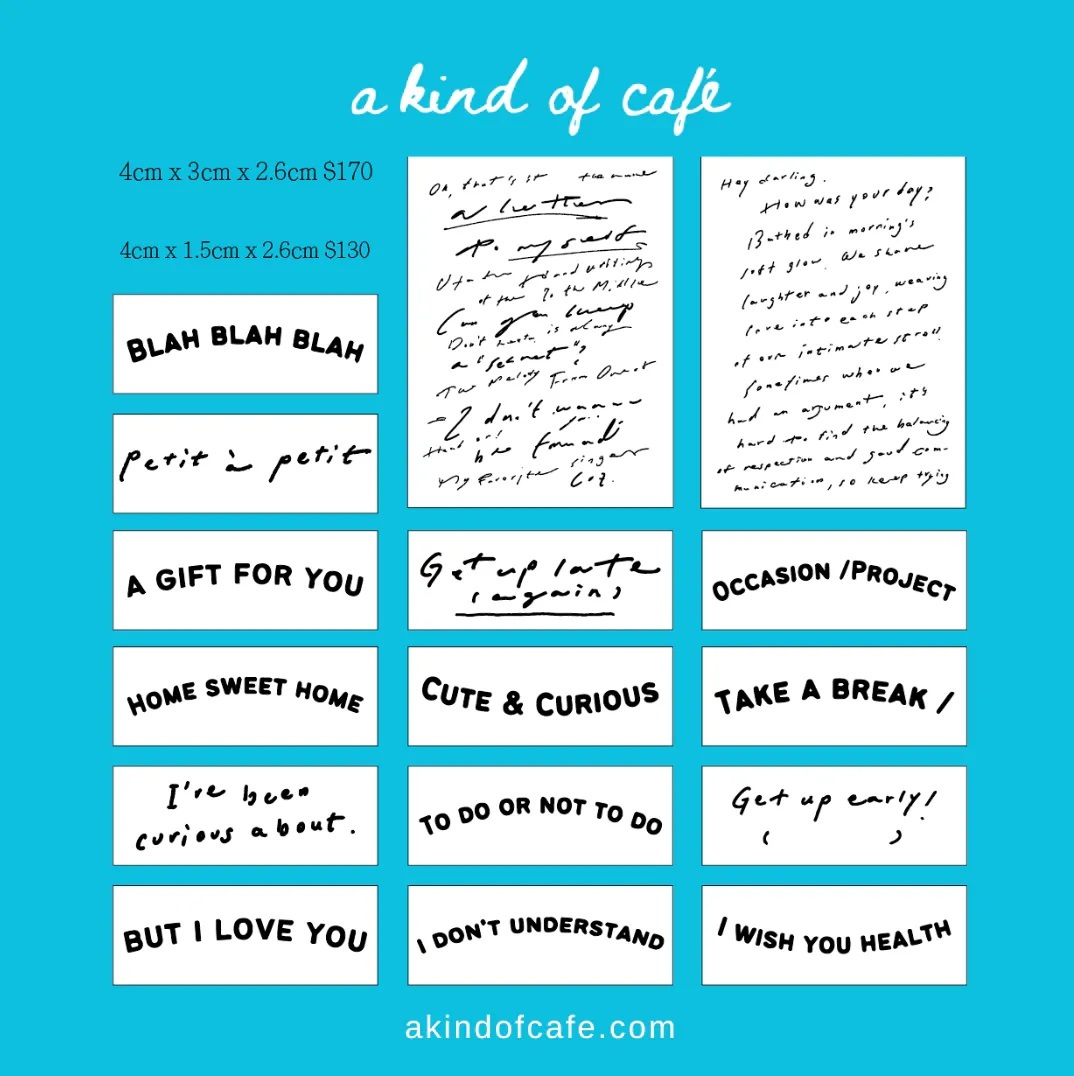 a kind of café
4cm x 3cm x 2.6cm $170
4cm x 1.5cm x 2.6cm $130
Oh, that's it the name
a letter
to myself
of the to the Middle
Can you keep
Don't is always
a "secret",
The Melody From
I don't wanna
be found
My Favorite singer
Coz.
Hey darling.
How was your day?
Bathed in morning's
soft glow. We share
laughter and joy, weaving
love into each step
of our intimate stroll.
Sometimes when we
had an argument, it's
hard to find the balancing
of respection and good com-
munication, so keep trying
BLAH BLAH BLAH
Petit à petit
A GIFT FOR YOU
Get up late
(again)
OCCASION /PROJECT
HOME SWEET HOME
CUTE & CURIOUS
TAKE A BREAK /
I've been
curious about.
TO DO OR NOT TO DO
Get up early!
( )
BUT I LOVE YOU
I DON'T UNDERSTAND
I WISH YOU HEALTH
akindofcafe.com